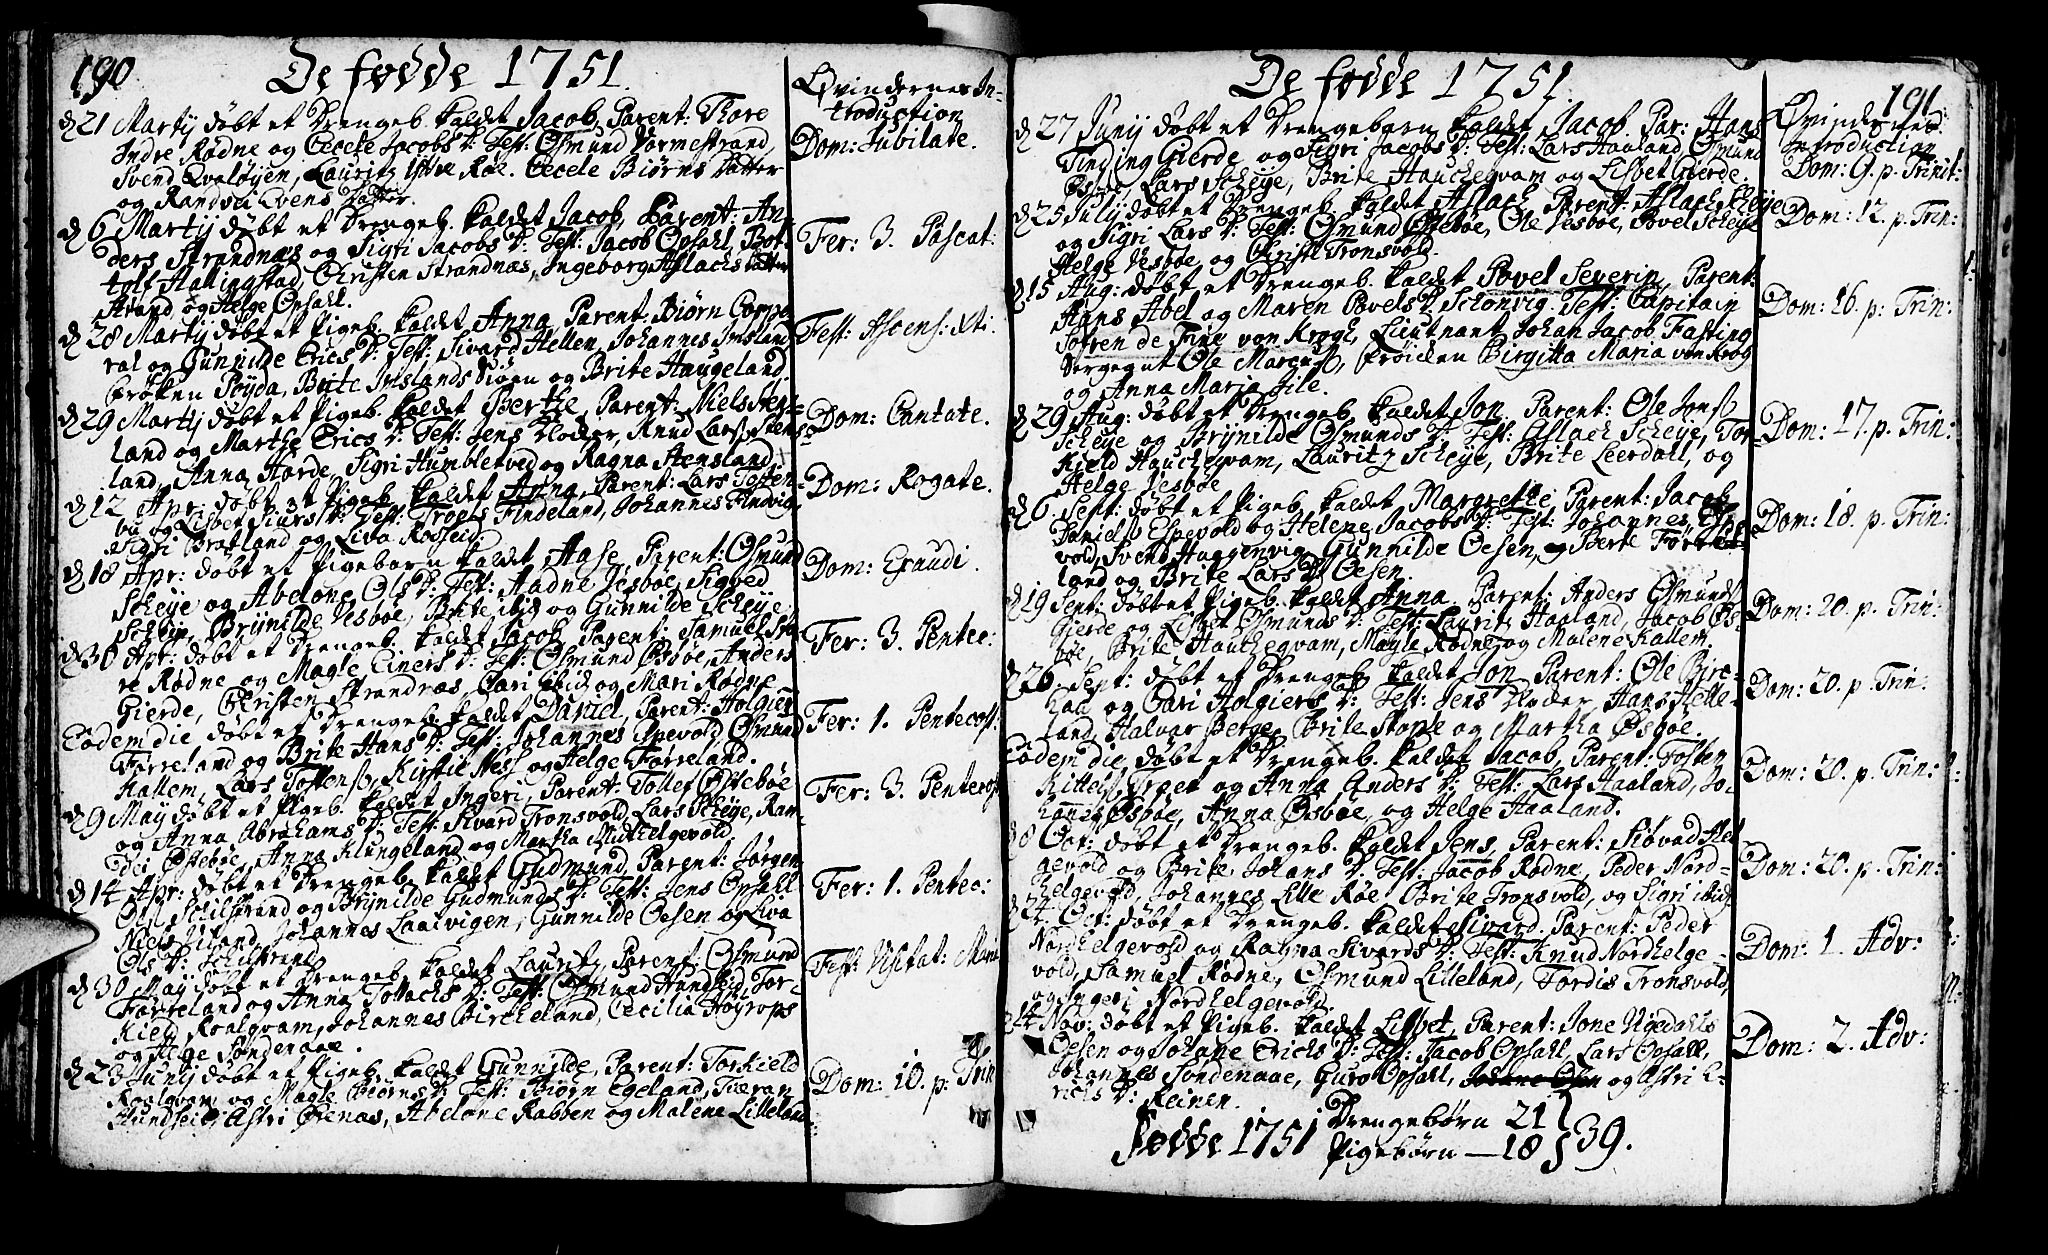 190
De fødde 1751.
Qvindernes In-
troduction
d 21 Martij døbt et Drengeb. kaldet Jacob, Parent: Thore
Indre Rødne og Cecele Jacobs D: Test: Osmund Vormestrand,
Svend Qvaløyen, Lauritz Ystre Røe. Cecele Biørns Datter
og Randvei Evens Datter.
Dom: Jubilate.
d 6 Martij døbt et Drengeb. kaldet Jacob, Parent: An-
ders Strandnæs og Sigri Jacobs D: Test: Jacob Opsahl, Bot-
tolf Hallingstad, Christen Strandnæs, Ingeborg Aslachs Datter
Strand, og Helge Opsahl.
Fer: 3. Pascat:
d 28 Martij døbt et Pigeb. kaldet Anna, Parent: Biørn Corpo-
ral og Gunnilde Erics D: Test: Sivard Hellen, Johannes Imsland,
Frøken Søyda, Brite Imslands Siøen og Brite Haugeland.
Fest: Ascens: Xti:
d 29 Martij døbt et Pigeb. kaldet Berthe, Parent: Niels Stens-
land og Marthe Erics D: Test: Jens Kloder, Knud Larss. Stens-
land, Anna Harde, Sigri Humbletved og Ragna Stensland.
Dom: Cantate.
d 12 Apr: døbt et Pigeb. kaldet Anna, Parent: Lars Testen-
bu og Lisbet Siurs D: Test: Troels Findeland, Johannes Findvig,
Sigri Bratland og Liva Rødseid.
Dom: Rogate.
d 18 Apr: døbt et Pigebarn kaldet Aase, Parent: Osmund
Scheije og Abelone Ols D: Test: Aadne Vesboe, Sigved
Scheije, Brynilde Vesboe, Brite ibid og Gunnilde Scheije.
Dom: Exaudi.
d 30 Apr: døbt et Drengeb. kaldet Jacob, Parent: Samuel Sto-
re Rødne og Magle Einers D: Test: Osmund Øsbøe, Anders
Gierde, Christen Strandnæs, Cari ibid og Mari Rødne.
Fer: 3. Pentec:
Eodem die døbt et Drengeb. kaldet Daniel, Parent: Holgier
Førreland og Brite Hans D: Test: Johannes Espevold, Osmund
Kallem, Lars Tostens., Kirstie Ness og Helge Førreland.
Fer: 1. Pentecost:
d 9 May døbt et Pigeb. kaldet Ingeri, Parent: Tollef Østebøe
og Anna Abrahams D: Test: Sivard Tronsvold, Lars Scheije, Ran-
di Østebøe, Anna Klungeland og Martha Mitthelgevold.
Fer: 3. Pentecost
d 14 Apr: døbt et Drengeb. kaldet Gudmund, Parent: Jørgen
Ols. Schilstrand og Brynilde Gudmunds D: Test: Jens Opsahl
Niels Utland, Johannes Laarvigen, Gunnilde Oesen og Liva
Ols D: Schilstrand.
Fer: 1. Pentec:
d 30 May døbt et Drengeb. kaldet Lauritz, Parent: Osmund
Førreland og Anna Tollachs D: Test: Osmund Hundseid, Tor-
kield Roalqvam, Johannes Bircheland, Cecilia Høyrops
og Helge Søndenaae.
Fest: Visitat: Mariæ
d 23 Junij døbt et Pigeb. kaldet Gunnilde, Parent: Torkield
Roalqvam og Magle Biørns D: Test: Biørn Egeland, Tveran
Hundseid, Astri Ørenas, Abelone Rabben og Malene Lilleland
Dom: 10. p: Trin
191
De fødde 1751.
Qvindernes
Introduction
d 27 Junij døbt et Drengebarn kaldet Jacob. Par: Hans
Tinding Gierde og Sigri Jacobs D: Test: Lars Haaland, Osmund
Øsbøe, Lars Scheije, Brite Hauchegvam og Lisbet Gierde.
Dom: 9. p. Trinit:
d 25 Julij døbt et Drengeb. kaldet Aslach, Parent: Aslach Scheije
og Sigri Lars D: Test: Osmund Østebøe, Ole Vesbøe, Povel Scheije
Helge Vesbøe og Christi Tronsvold.
Dom: 12. p. Trin:
d 15 Aug: døbt et Drengeb. kaldet Povel Severin, Parent:
Hans Abel og Maren Povels D: Schonvig. Test: Capitain
Søfren de Finn von Krogh, Lieutnant Johan Jacob Fasting
Sergeant Ole Marcuss, Frøiden Birgitta Maria von Krog
og Anna Maria Jile.
Dom: 16. p: Trin:
d 29 Aug: døbt et Drengeb. kaldet Jon, Parent: Ole Jons.
Scheije og Brynilde Osmunds D: Test: Aslach Scheije, Tor-
kield Hauchegvam, Lauritz Scheije, Brite Leerdall, og
Helge Vesbøe
Dom: 17. p. Trin:
d 6 Sept: døbt et Pigeb. kaldet Margrethe, Parent: Jacob
Daniels. Espevold og Helene Jacobs D: Test: Johannes Espe-
vold, Svend Haggenvig, Gunnilde Oesen, og Berte Førre-
land og Brite Lars D: Oesen.
Dom: 18. p. Trin:
d 19 Sept: døbt et Pigeb. kaldet Anna. Parent: Anders Osmunds.
Gierde og Lisbet Osmunds D: Test: Lauritz Haaland, Jacob Øs-
bøe, Brite Hauchegvam, Magle Rødne, og Malene Kallem.
Dom: 20. p. Trin:
d 26. Sept: døbt et Drengeb. kaldet Jon, Parent: Ole Birc-
haa og Cari Holgiers D: Test: Jens Kloder, Hans Helle-
land, Halvor Berge, Brite Stople og Martha Øsbøe.
Dom: 20. p. Trin.
Eodem Die døbt et Drengeb. kaldet Jacob, Parent: Tosten
Kittels. Træet og Anna Anders D: Test: Lars Haaland, Jo-
hannes Øsbøe, Anna Øsbøe, og Helge Haaland.
Dom: 20. p. Trin:
d 8 Oct: døbt et Drengeb. kaldet Jens, Parent: Siøvad Hel-
gevold og Brite Johans D: Test: Jacob Rødne, Peder Nord-
helgevold, Johannes Lille Røe, Brite Tronsvold, og Sigri ibid.
Dom: 20. p. Trin:
d 24 Oct: døbt et Drengeb. kaldet Sivard. Parent: Peder
Nordhelgevold og Ragna Sivards D: Test: Knud Nordhelge-
vold, Samuel Rødne, Osmund Lilleland, Tordis Tronsvold,
og Ingeri Nordhelgevold.
Dom: 1. Adv:
d 14 Nov: døbt et Pigeb. kaldet Lisbet, Parent: Jone Ugedahls
Oesen og Johane Erichs D: Test: Jacob Opsahl, Lars Opsahl,
Johannes Søndenaae, Guro Opsahl, Johane Osen og Astri E-
richs D: Reinen.
Dom: 2. Adv:
Fødde 1751 Drengebørn 21
Pigebørn — 18 } 39.